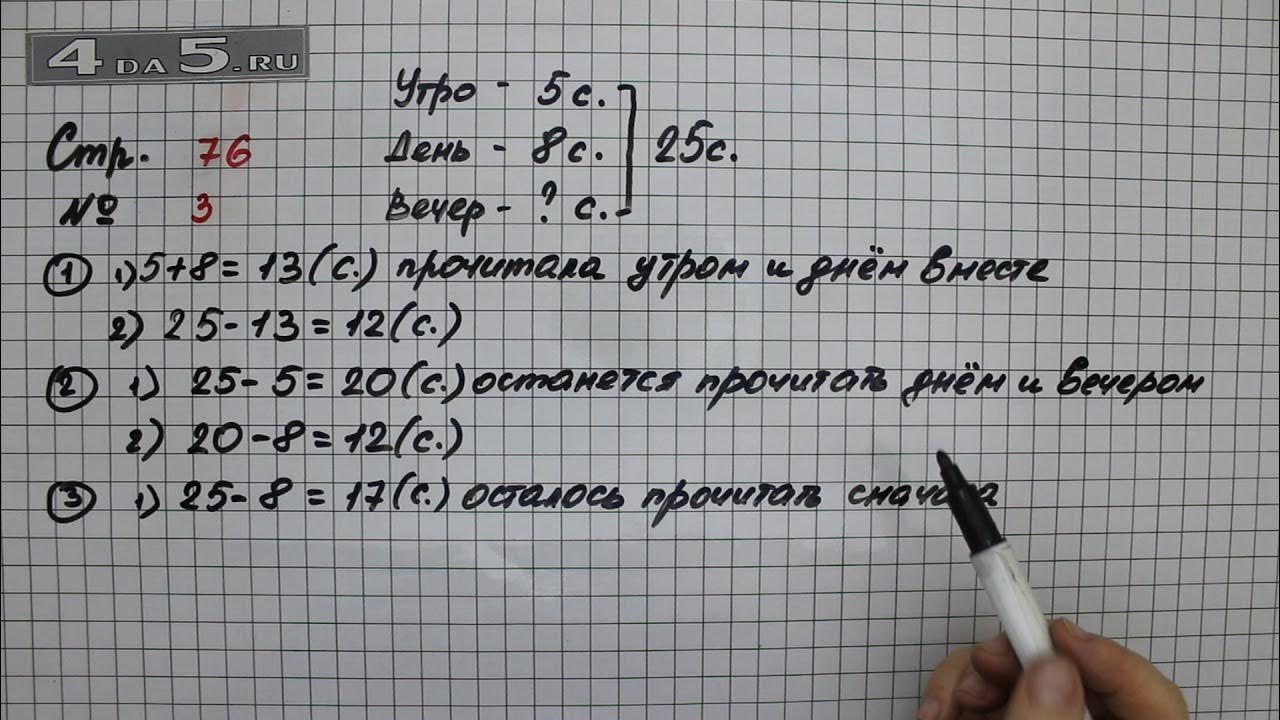 4DA5.RU
Утро - 5 с.
Стр. 76
День - 8 с.
25 с.
№ 3
Вечер - ? с.
① 1) 5+8 = 13 (с.) прочитала утром и днём вместе
2) 25-13 = 12 (с.)
② 1) 25-5 = 20 (с.) останется прочитать днём и вечером
2) 20-8 = 12 (с.)
③ 1) 25-8 = 17 (с.) осталось прочитать сначала